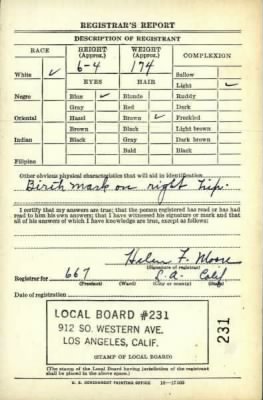 REGISTRAR'S REPORT
DESCRIPTION OF REGISTRANT
RACE HEIGHT (Approx.) WEIGHT (Approx.) COMPLEXION
6-4 174
White ✓ Sallow
EYES HAIR Light ✓
Negro Blue ✓ Blonde Ruddy
Gray Red Dark
Oriental Hazel Brown ✓ Freckled
Brown Black Light brown
Indian Black Gray Dark brown
Bald Black
Filipino
Other obvious physical characteristics that will aid in identification
Birth mark on right hip.
I certify that my answers are true; that the person registered has read or has had
read to him his own answers; that I have witnessed his signature or mark and that
all of his answers of which I have knowledge are true, except as follows:
Helen F. Moore
(Signature of registrar)
Registrar for 667 L. A. Calif
(Precinct) (Ward) (City or county) (State)
Date of registration
LOCAL BOARD #231
912 SO. WESTERN AVE.
LOS ANGELES, CALIF.
(STAMP OF LOCAL BOARD)
231
(The stamp of the Local Board having jurisdiction of the registrant
shall be placed in the above space.)
U. S. GOVERNMENT PRINTING OFFICE